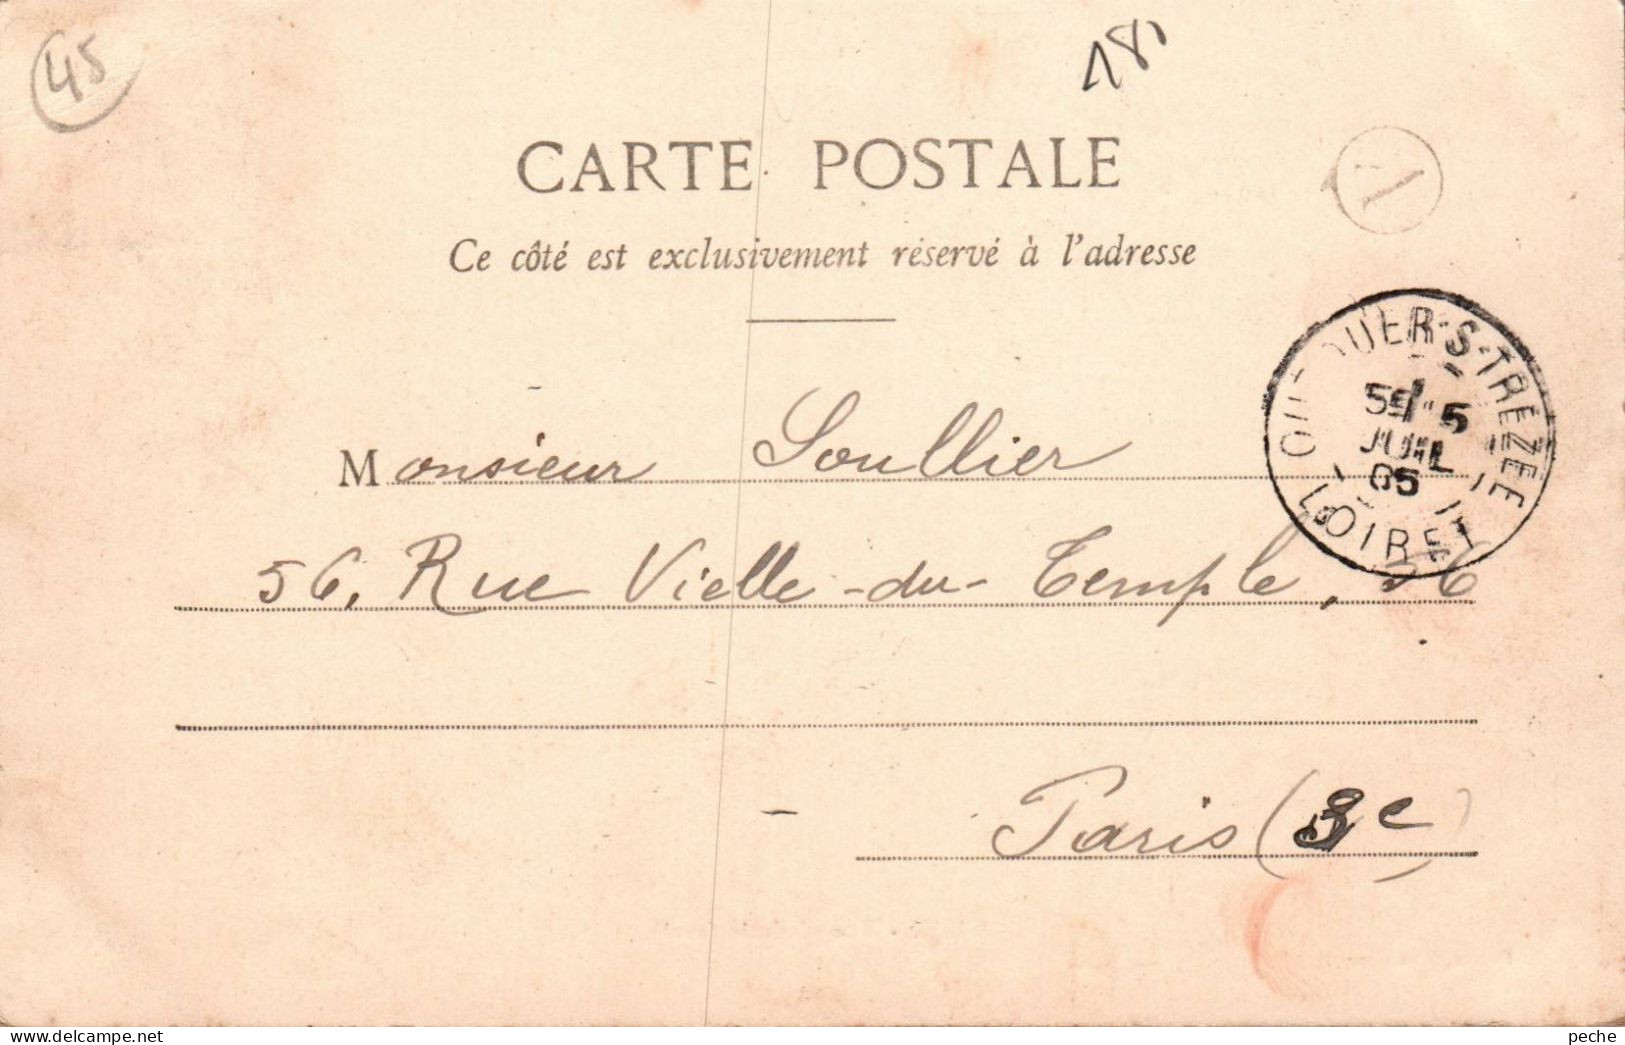 45
181
CARTE POSTALE
Ce côté est exclusivement réservé à l'adresse
OUZOUER-S-TREZEE
5E 5
JUIL
05
LOIRET
Monsieur Soullier
56, Rue Vielle-du-Temple, 56
Paris (3e)
peche